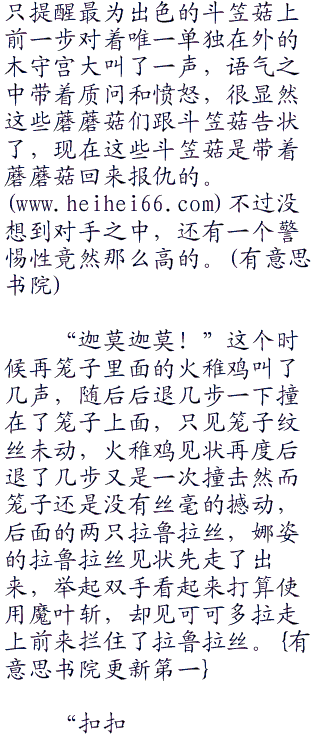 只提醒最为出色的斗笠菇上
前一步对着唯一单独在外的
木守宫大叫了一声，语气之
中带着质问和愤怒，很显然
这些蘑蘑菇们跟斗笠菇告状
了，现在这些斗笠菇是带着
蘑蘑菇回来报仇的。
(www.heihei66.com)不过没
想到对手之中，还有一个警
惕性竟然那么高的。(有意思
书院)
“迦莫迦莫！”这个时
候再笼子里面的火稚鸡叫了
几声，随后后退几步一下撞
在了笼子上面，只见笼子纹
丝未动，火稚鸡见状再度后
退了几步又是一次撞击然而
笼子还是没有丝毫的撼动，
后面的两只拉鲁拉丝，娜姿
的拉鲁拉丝见状先走了出
来，举起双手看起来打算使
用魔叶斩，却见可可多拉走
上前来拦住了拉鲁拉丝。{有
意思书院更新第一}
“扣扣